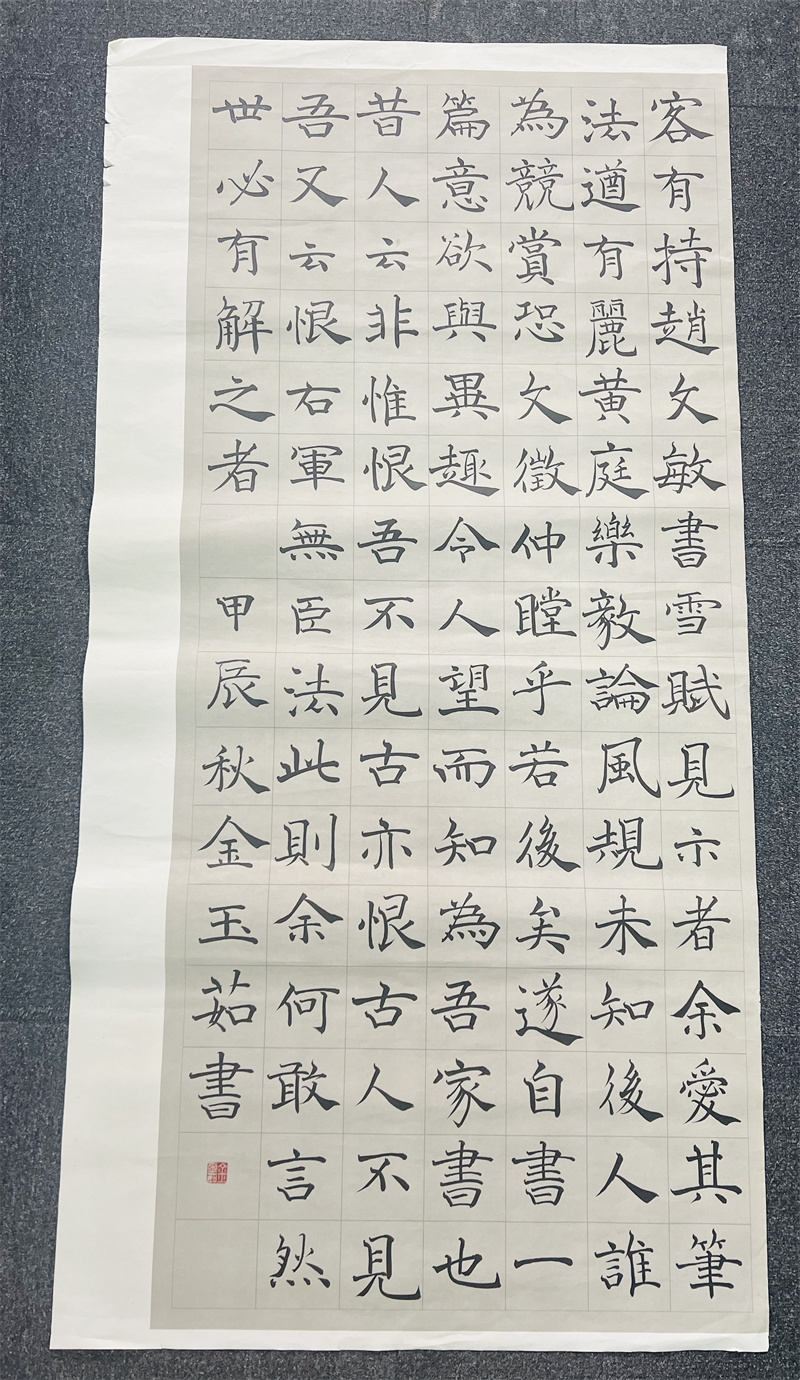 客有持趙文敏書雪賦見示者余愛其筆
法遒有麗黃庭樂毅論風規未知後人誰
為競賞恐文徵仲瞠乎若後矣遂自書一
篇意欲與異趣令人望而知為吾家書也
昔人云非惟恨吾不見古亦恨古人不見
吾又云恨右軍無臣法此則余何敢言然
世必有解之者 甲辰秋金玉茹書